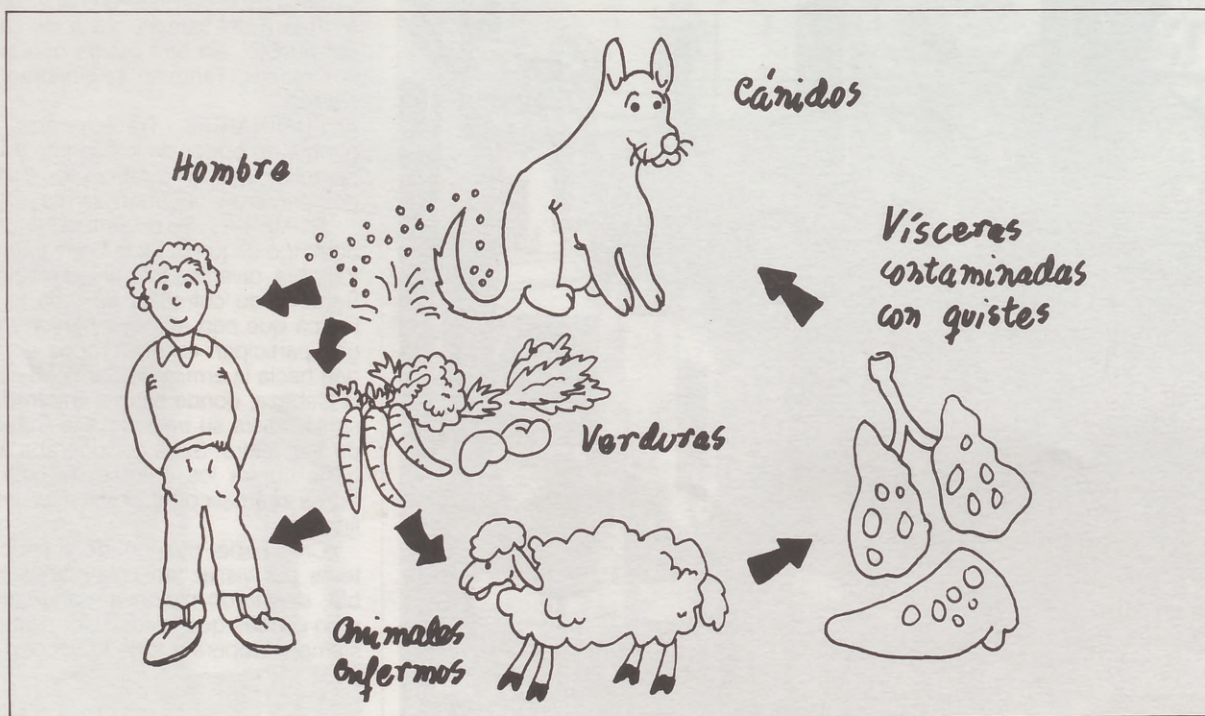 Cánidos
Hombre
Vísceras
contaminadas
con quistes
Verduras
Animales
enfermos